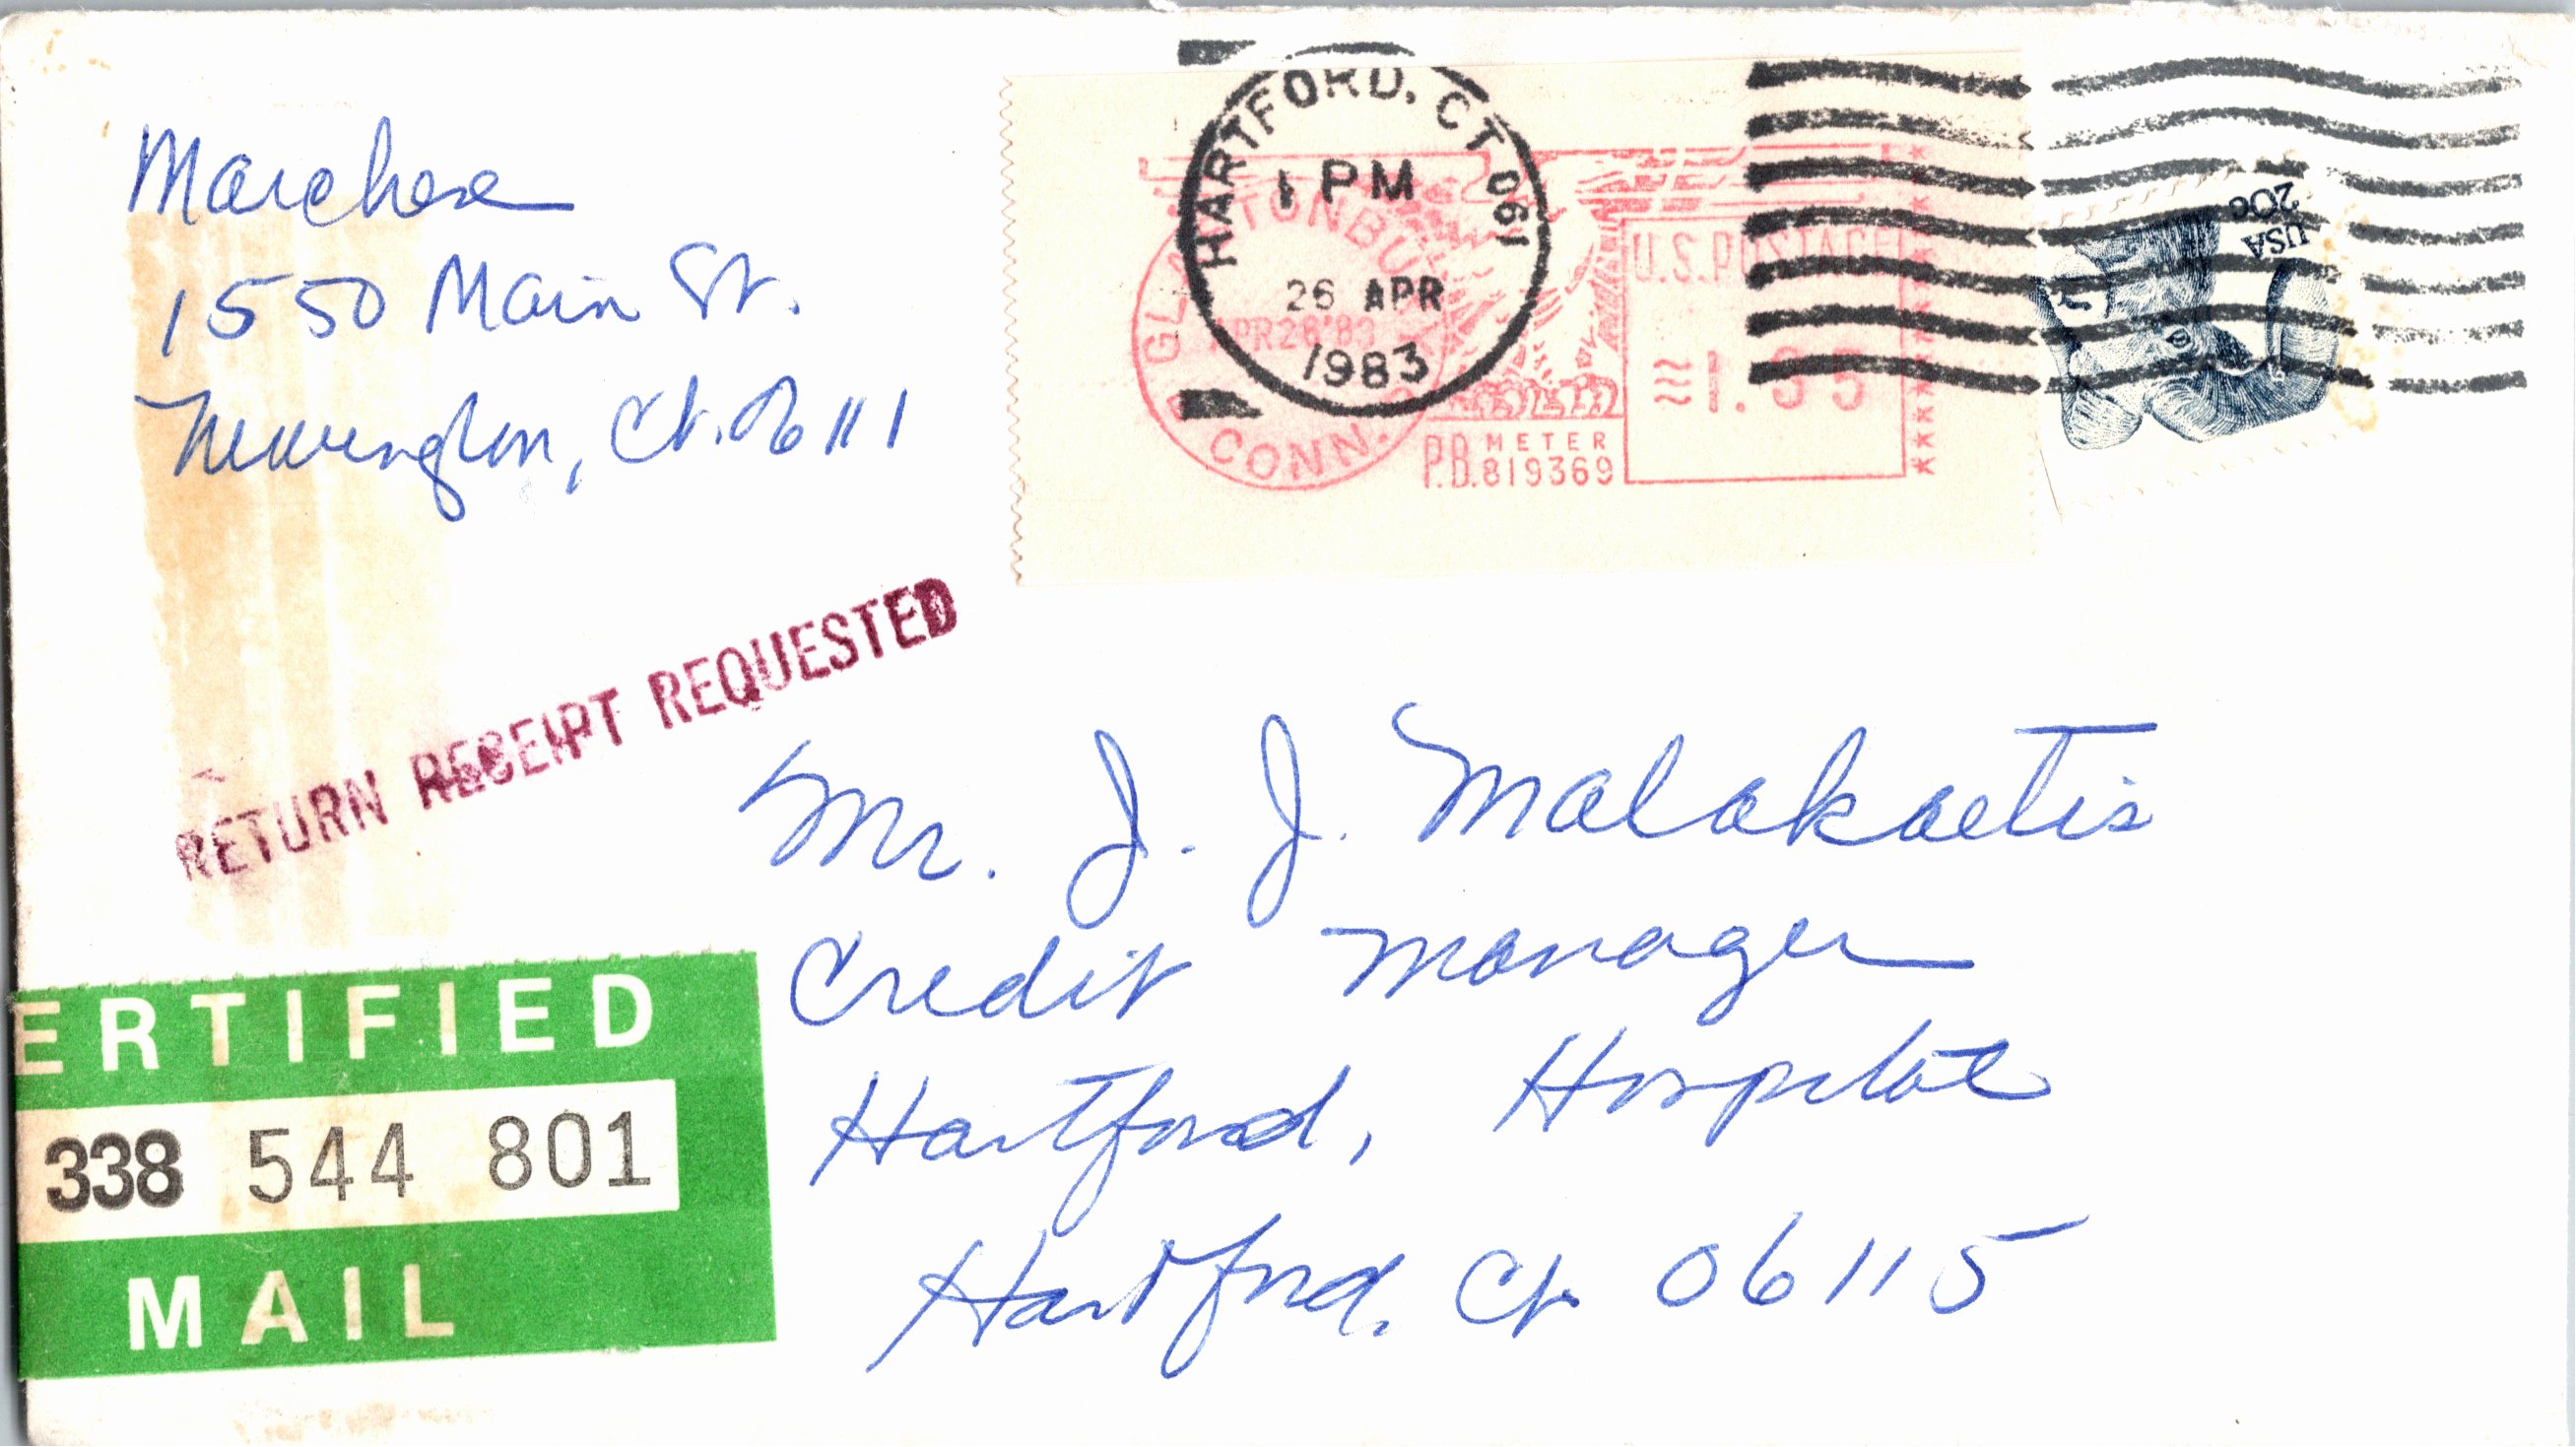 Marchese
1550 Main St.
Newington, Ct. 06111
HARTFORD, CT 061
1 PM
26 APR
1983
CONN.
U.S. POSTAGE
P.B. METER
819369
USA
20c
RETURN RECEIPT REQUESTED
Mr. J. J. Malakaetis
Credit Manager
Hartford, Hospital
Hartford, Ct. 06115
ERTIFIED
338 544 801
MAIL